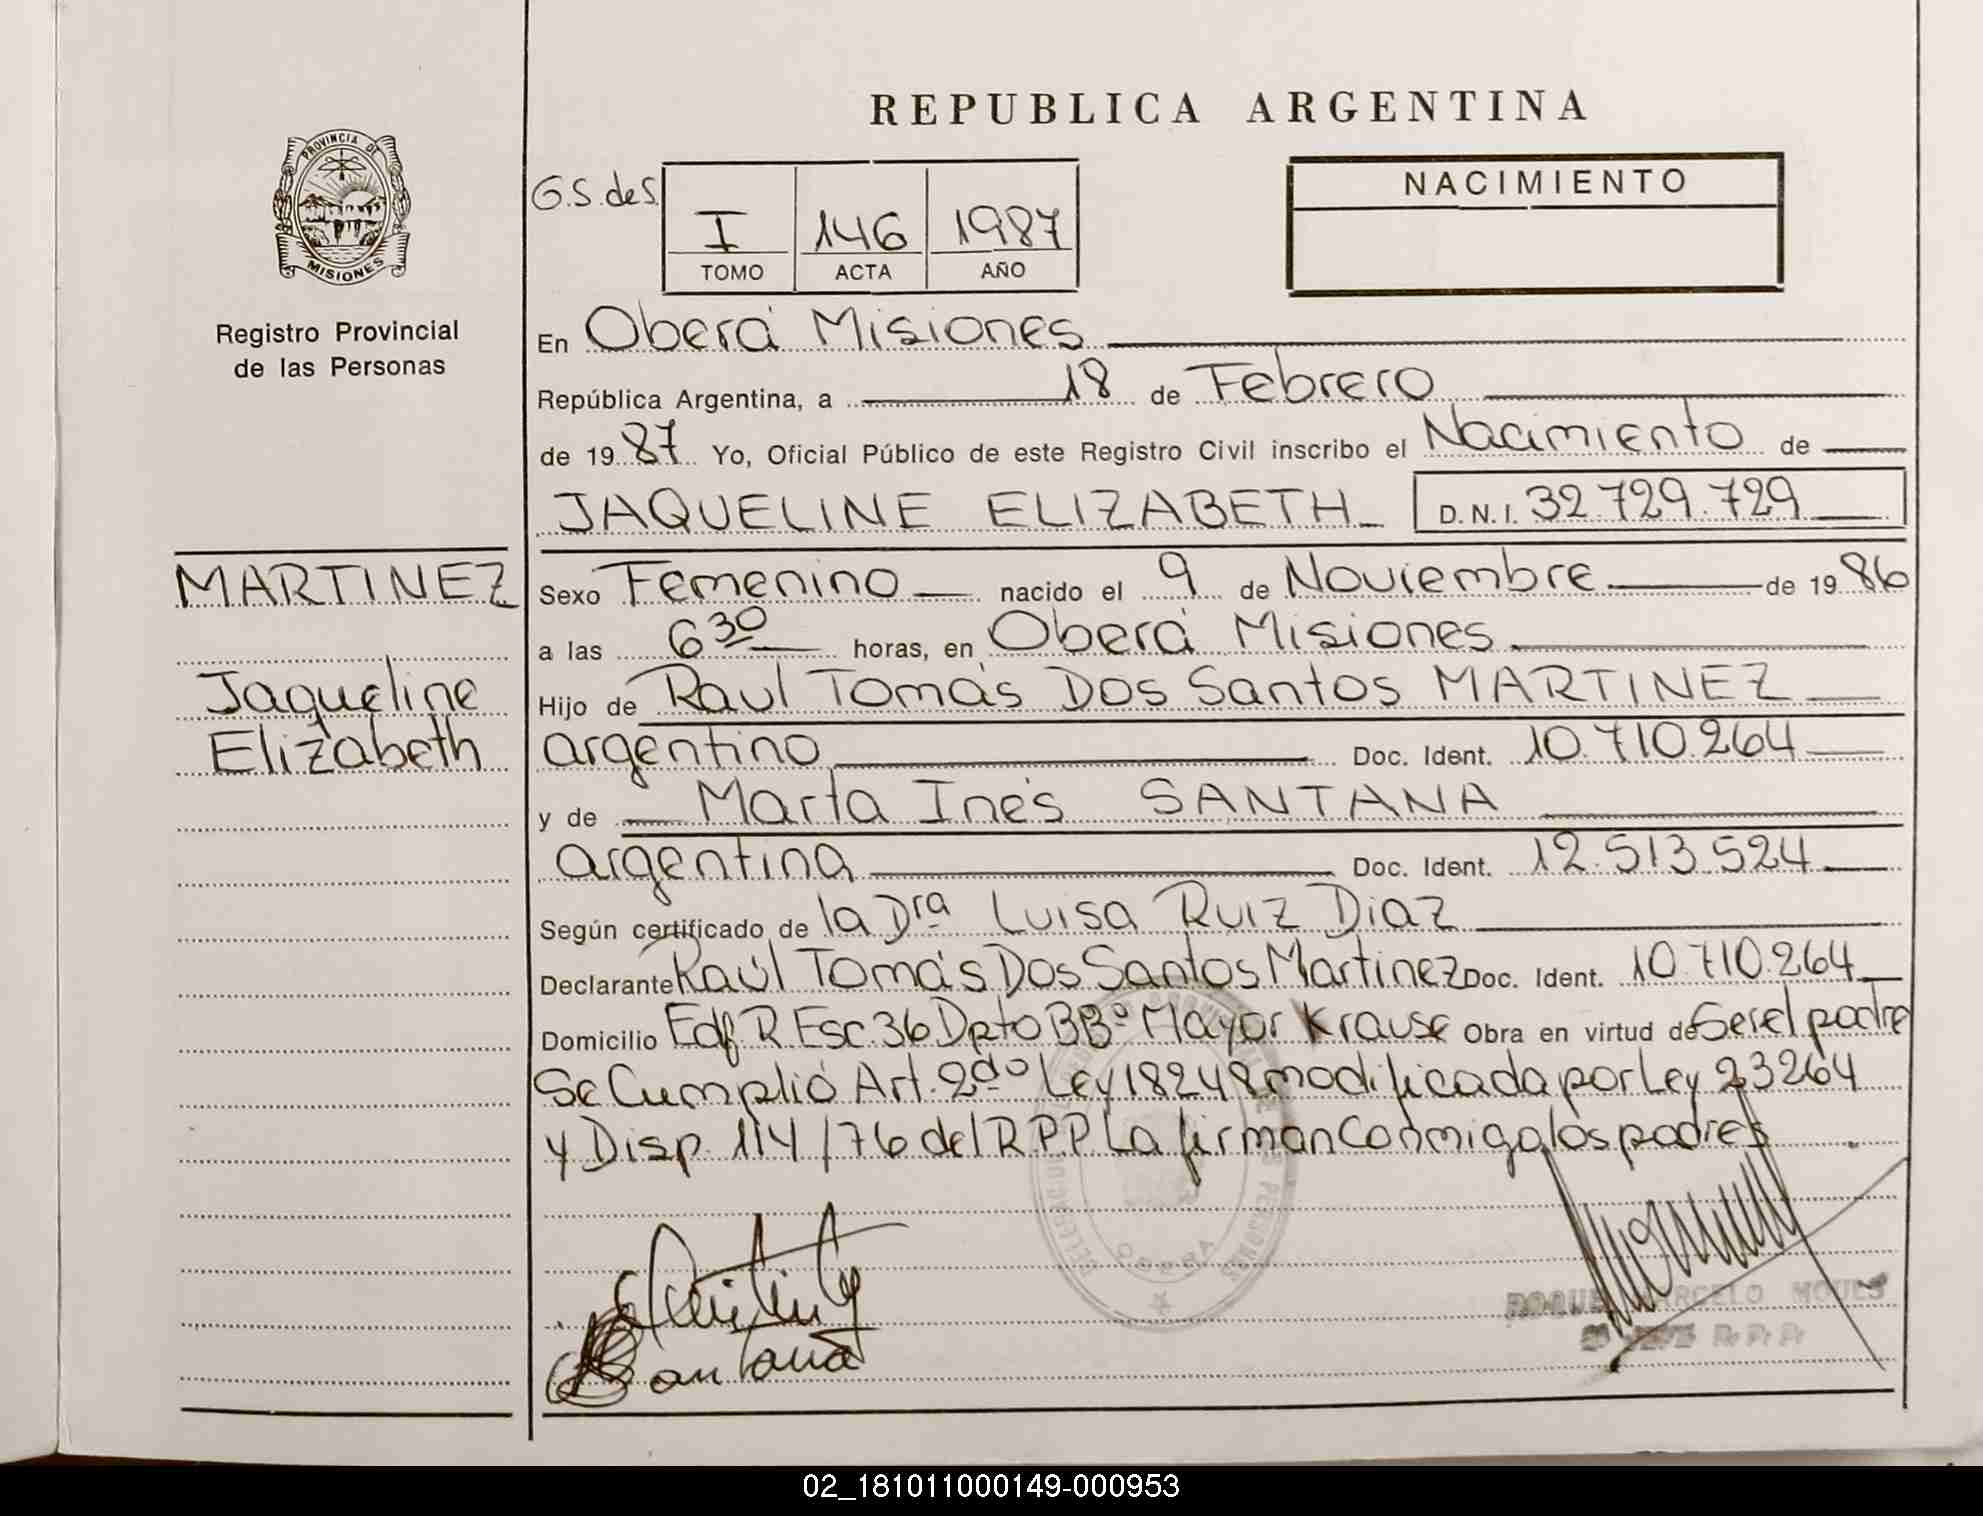 REPUBLICA ARGENTINA
PROVINCIA DE
MISIONES
Registro Provincial
de las Personas
G.S. de S.
I 146 1987
TOMO ACTA AÑO
NACIMIENTO
En Oberá Misiones
República Argentina, a 18 de Febrero
de 1987 Yo, Oficial Público de este Registro Civil inscribo el Nacimiento de
JAQUELINE ELIZABETH D.N.I. 32.729.729
MARTINEZ
Jaqueline
Elizabeth
Sexo Femenino nacido el 9 de Noviembre de 1986
a las 6 30 horas, en Oberá Misiones
Hijo de Raul Tomás Dos Santos MARTINEZ
argentino Doc. Ident. 10.710.264
y de Marta Inés SANTANA
argentina Doc. Ident. 12.513.524
Según certificado de la Dra Luisa Ruiz Diaz
Declarante Raúl Tomás Dos Santos Martinez Doc. Ident. 10.710.264
Domicilio Edf R Esc. 36 Dpto B Bº Mayor Krause Obra en virtud de Ser el padre
Se Cumplió Art. 2do Ley 18248 modificada por Ley 23264
y Disp. 114/76 del R.P.P. La firman Conmigo los padres
Santana
ROQUE MARCELO
02_181011000149-000953